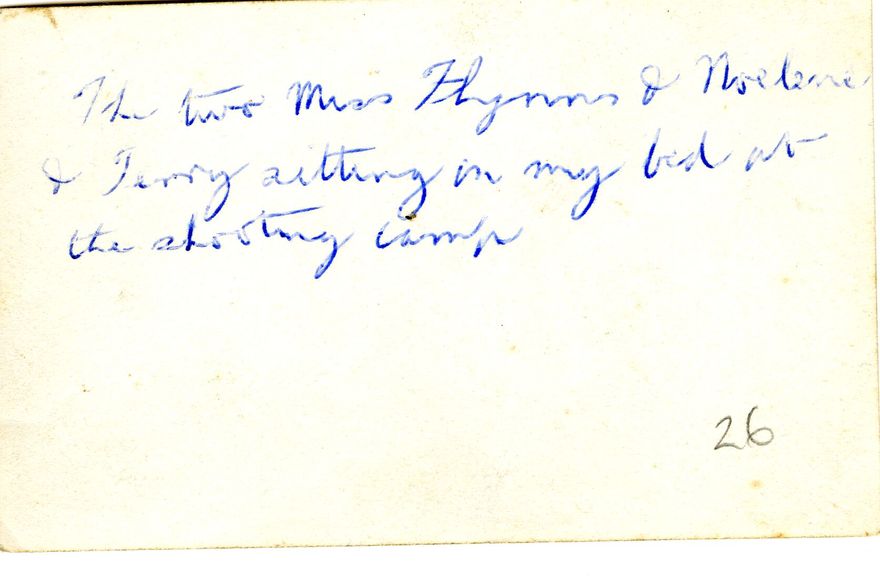 The two Miss Flynns & Noelene
& Terry sitting on my bed at
the shooting camp
26